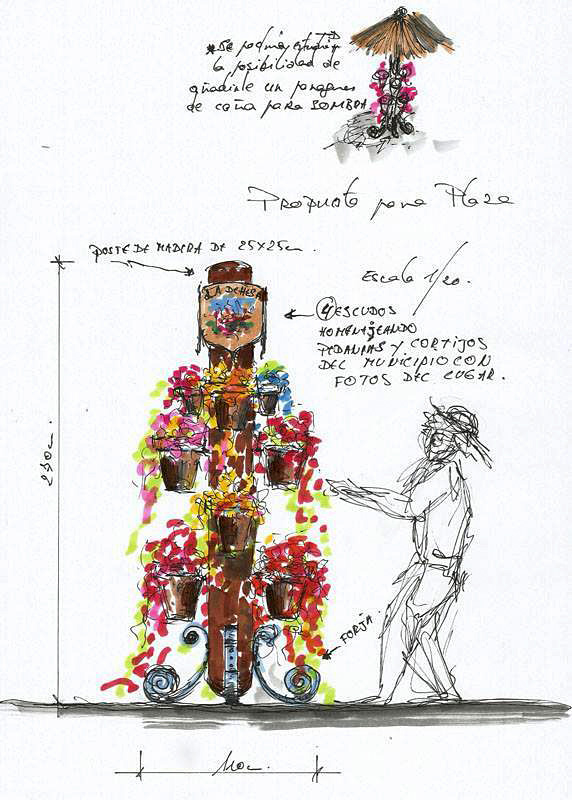 *SE podría estudiar
la posibilidad de
añadirle un paragüas
de caña para SOMBRA
Propuesta para Plaza
POSTE DE MADERA DE 25X25cm.
Escala 1/20.
LA DEHESA
④ ESCUDOS
HOMENAJEANDO
PEDANIAS Y CORTIJOS
DEL MUNICIPIO CON
FOTOS DEL LUGAR.
250c.
FORJA.
110c.